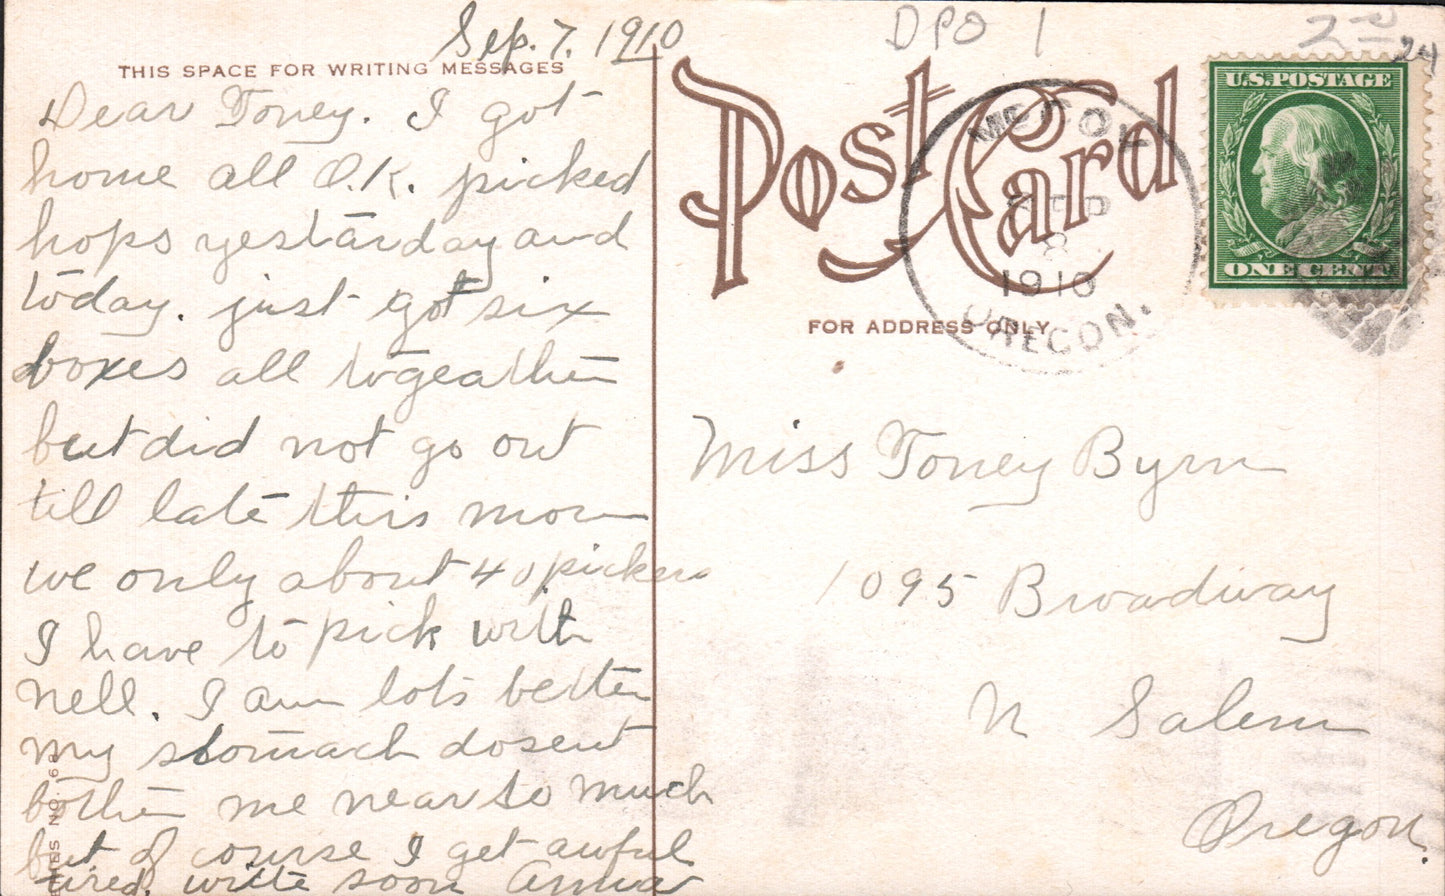 Sep. 7, 1910
THIS SPACE FOR WRITING MESSAGES
Dear Toney. I got
home all O.K. picked
hops yestarday and
today. just got six
boxes all togeather
but did not go out
till late this morn
we only about 40 pickers
I have to pick with
nell. I am lots better
my stomach dosent
bother me near so much
but of course I get awful
tired. write soon Anna
NO. 68
DPO 1
2
24
POST CARD
FOR ADDRESS ONLY
MCCOY
SEP
8
1910
OREGON.
U.S. POSTAGE
ONE CENT
Miss Toney Byrn
1095 Broadway
N Salem
Oregon.